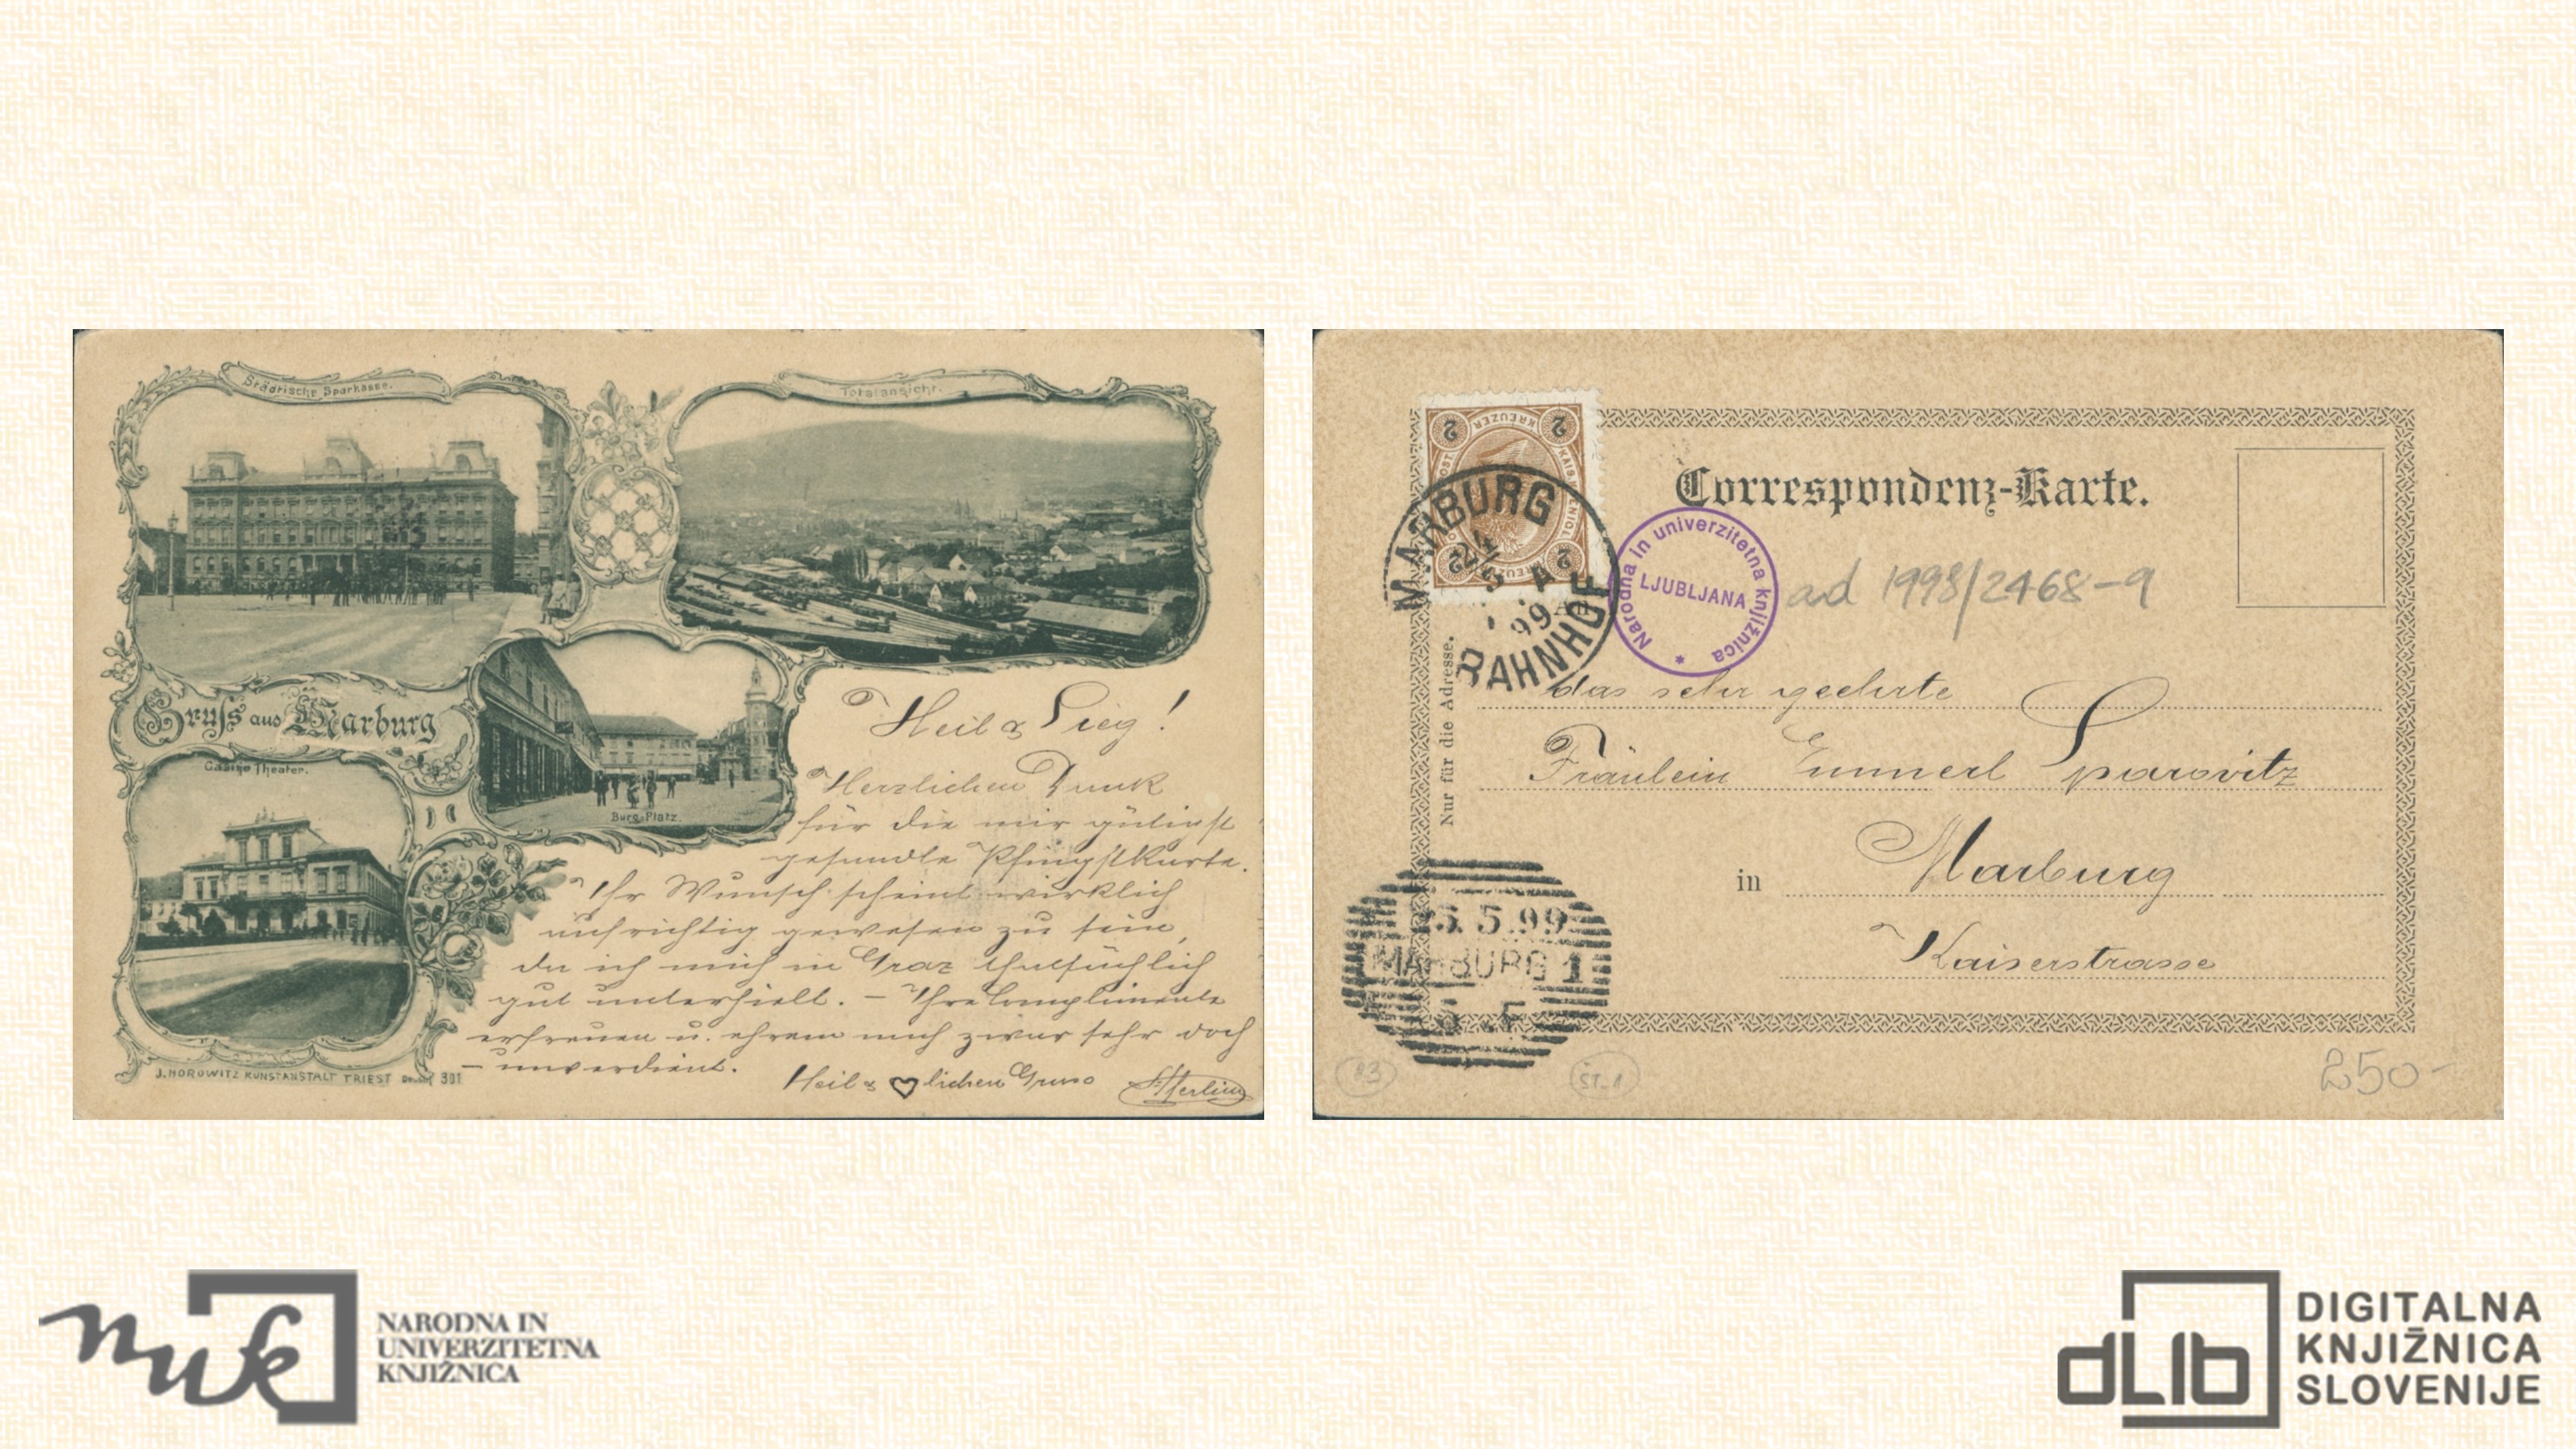 Städtische Sparkasse.
Totalansicht.
Gruss aus Marburg
Burg-Platz.
Casino Theater.
Heil & Sieg!
Herzlichen Dank
für die mir gütigst
gesandte Pfingstkarte.
Ihr Wunsch scheint wirklich
aufrichtig gewesen zu sein,
da ich mich in Graz thatsächlich
gut unterhielt. – Ihre Complimente
erfreuen u. ehren mich zwar sehr doch
– unverdient.
Heil & ♡lichen Gruss
J. HOROWITZ KUNSTANSTALT TRIEST 301
Correspondenz-Karte.
2 KREUZER 2
2 2
MARBURG
24 5 A
99
BAHNHOF
Narodna in univerzitetna knjižnica
LJUBLJANA
ad 1998/2468-9
Nur für die Adresse.
das sehr geehrte
Fräulein Emmerl Sparovitz
in Marburg
Kaiserstrasse
5.5.99
MARBURG 1
250-
nuk
NARODNA IN
UNIVERZITETNA
KNJIŽNICA
dLib
DIGITALNA
KNJIŽNICA
SLOVENIJE